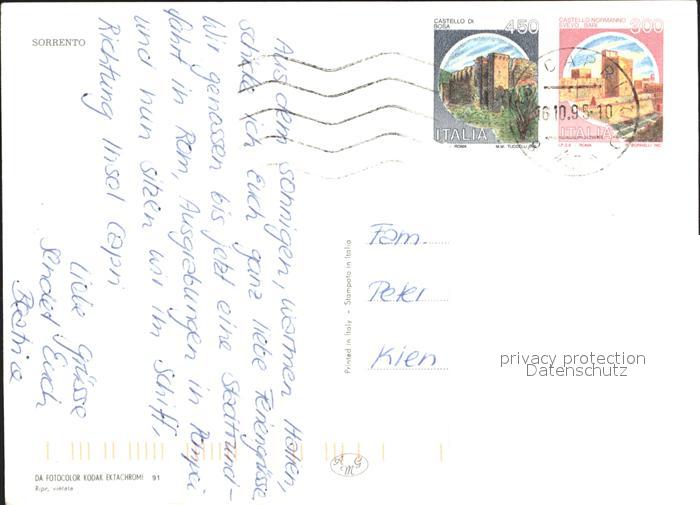 SORRENTO
CASTELLO DI
BOSA
450
ITALIA
ROMA
CASTELLO NORMANNO
SVEVO. BARI
300
ITALIA
I.P.Z.S. - ROMA
CAPRI
16.10.95-10
Aus dem sonnigen, warmen Italien,
schicke ich Euch ganz liebe Feriengrüsse.
Wir genossen bis jetzt eine Stadtrund-
fahrt in Rom, Ausgrabungen in Pompei
und nun sitzen wir im Schiff,
Richtung Insel Capri
Liebe Grüsse
sendet Euch
Beatrice
Printed in Italy - Stampato in Italia
Fam.
Peter
Kien
privacy protection
Datenschutz
DA FOTOCOLOR KODAK EKTACHROME 91
Ripr. vietata